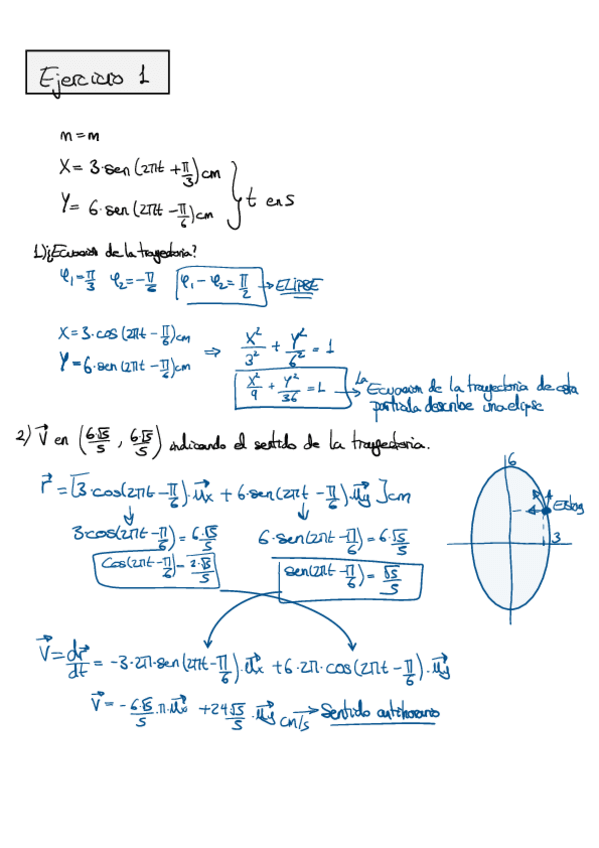 Ejercicio 1
m = m
X = 3·sen(2πt + π/3) cm
Y = 6·sen(2πt − π/6) cm } t en s
1) ¿Ecuación de la trayectoria?
φ₁ = π/3 φ₂ = −π/6 φ₁ − φ₂ = π/2 → ELIPSE
X = 3·cos(2πt − π/6) cm
Y = 6·sen(2πt − π/6) cm ⇒ X²/3² + Y²/6² = 1
X²/9 + Y²/36 = 1 → La Ecuación de la trayectoria de esta
partícula describe una elipse
2) V⃗ en (6√5/5, 6√5/5) indicando el sentido de la trayectoria.
r⃗ = [3·cos(2πt − π/6)·u⃗x + 6·sen(2πt − π/6)·u⃗y] cm
3cos(2πt − π/6) = 6·√5/5 6·sen(2πt − π/6) = 6·√5/5
cos(2πt − π/6) = 2·√5/5 sen(2πt − π/6) = √5/5
6
3
V⃗ = dr⃗/dt = −3·2π·sen(2πt − π/6)·u⃗x + 6·2π·cos(2πt − π/6)·u⃗y
V⃗ = −6√5/5·π·u⃗x + 24√5/5·u⃗y cm/s → Sentido antihorario